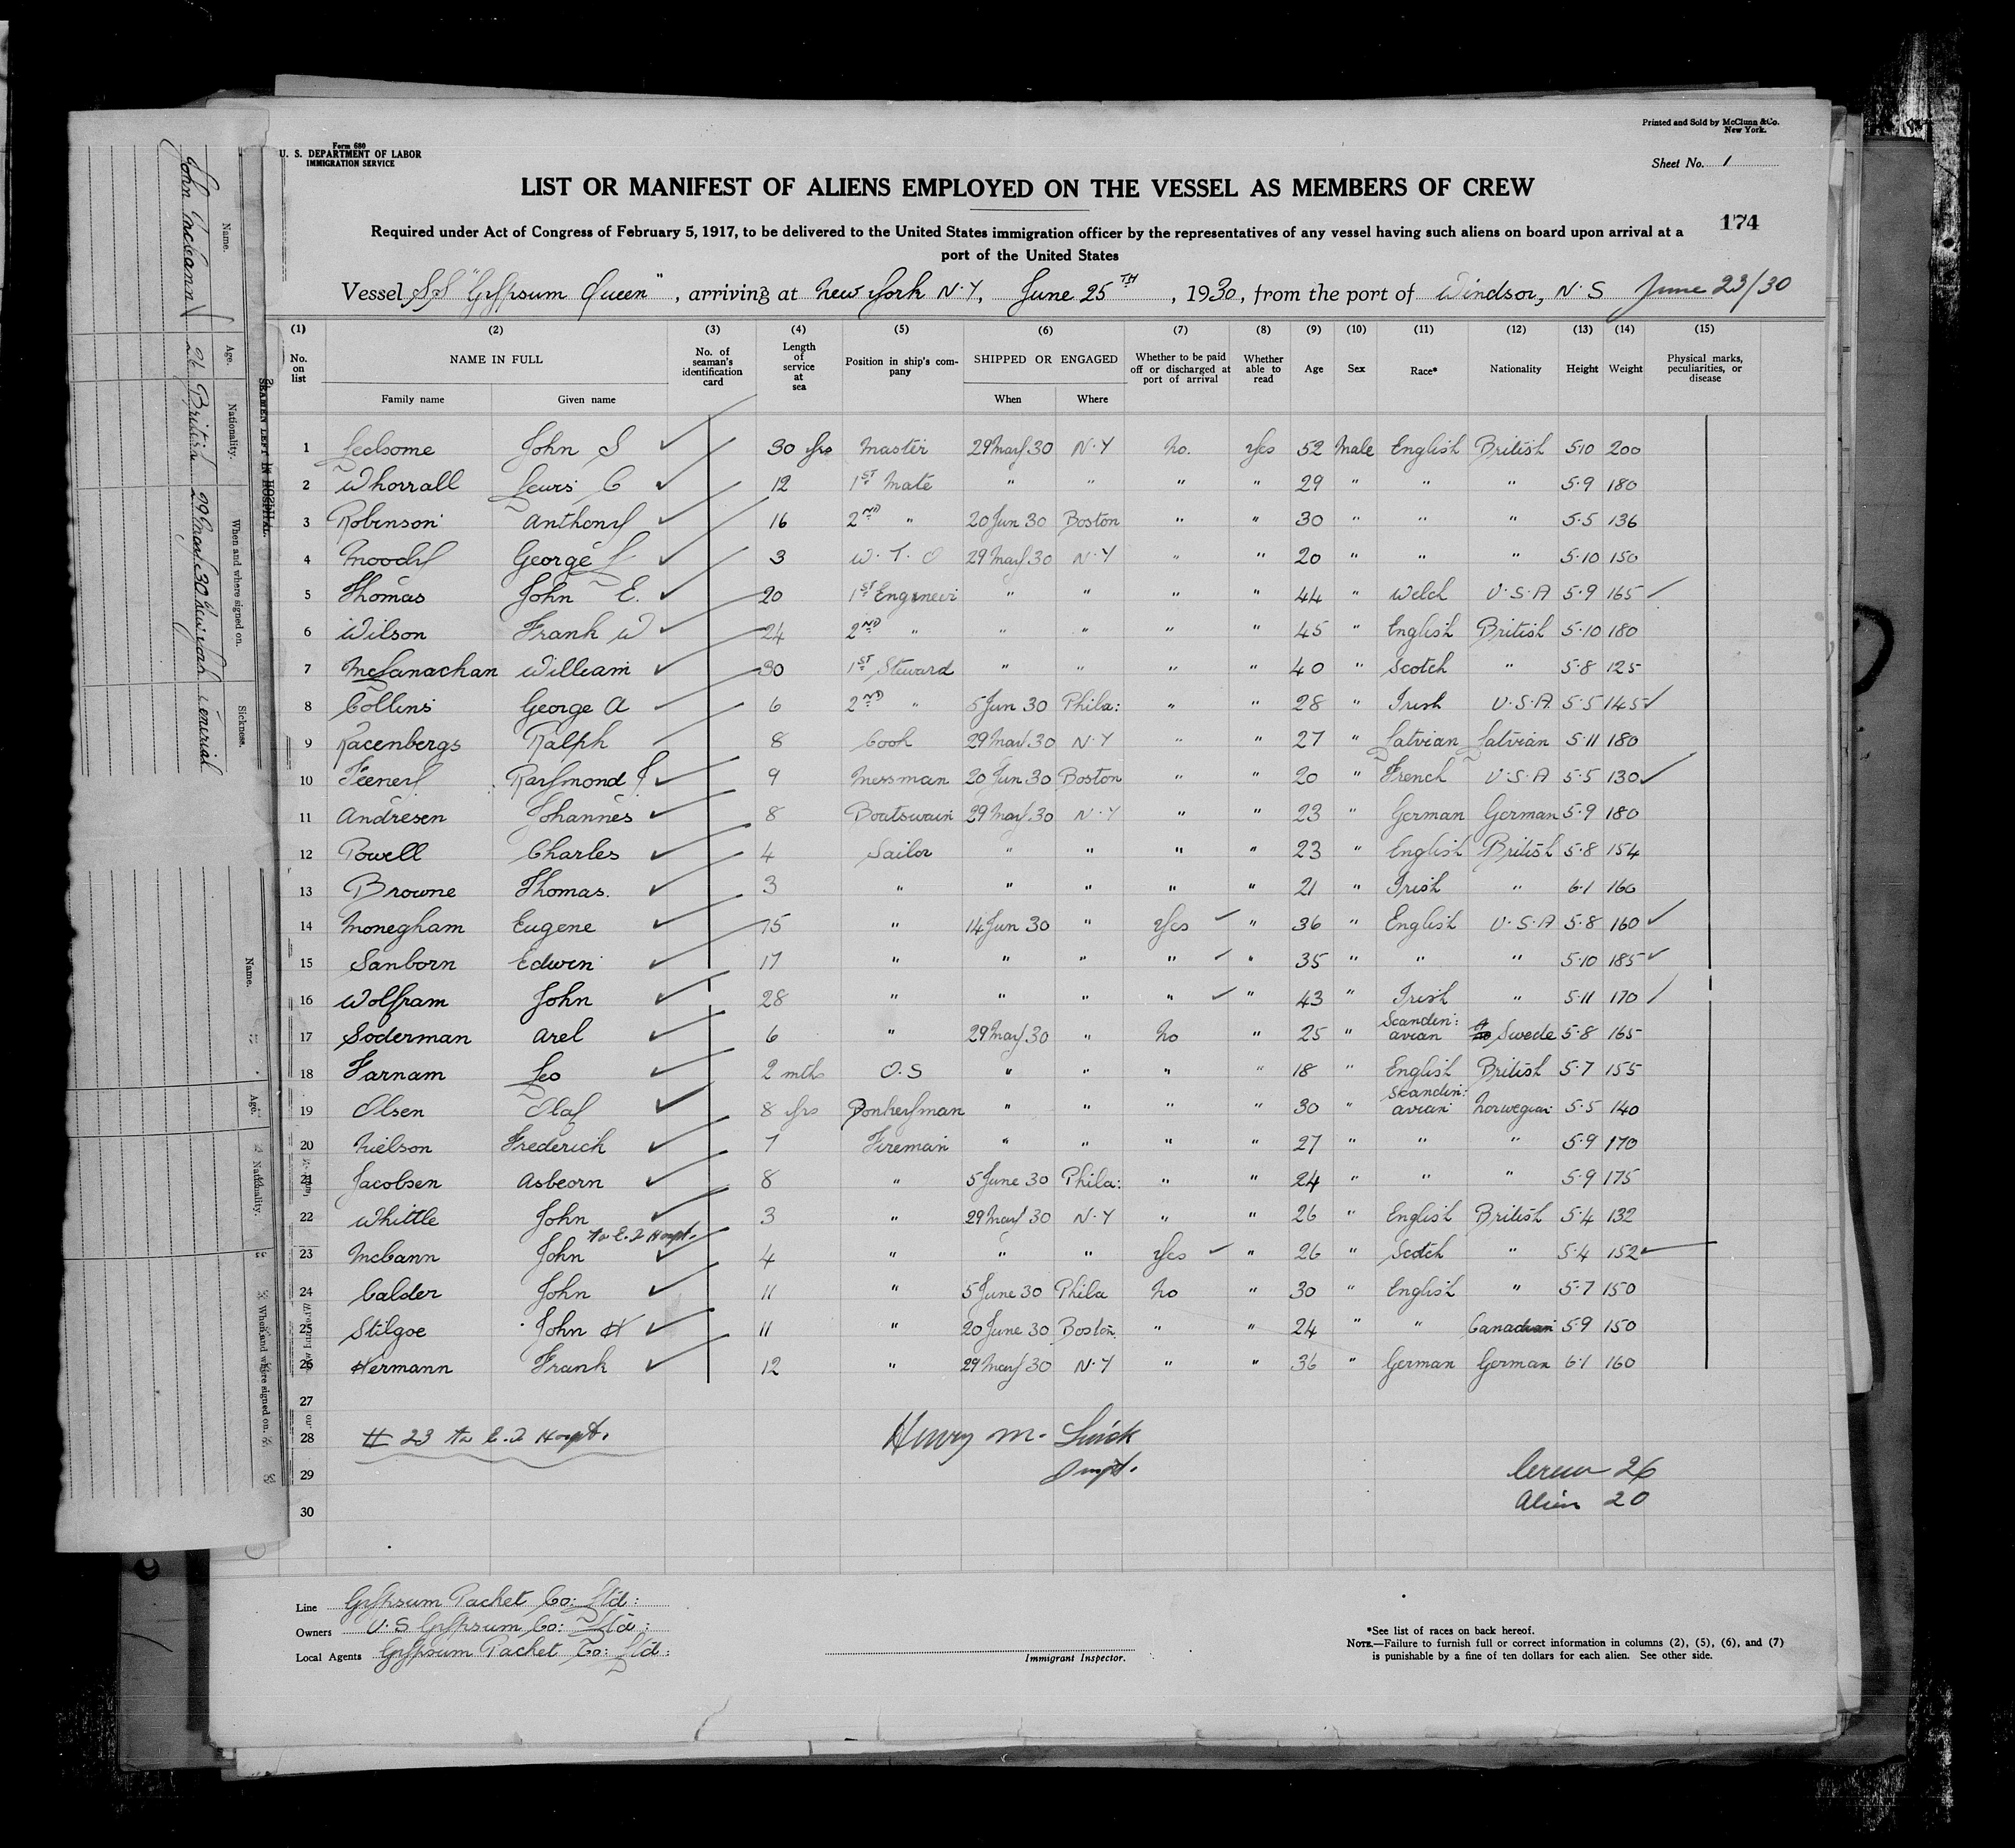 Printed and Sold by McClunn & Co.
New York.
Form 680
U. S. DEPARTMENT OF LABOR
IMMIGRATION SERVICE
Sheet No. 1
LIST OR MANIFEST OF ALIENS EMPLOYED ON THE VESSEL AS MEMBERS OF CREW
174
Required under Act of Congress of February 5, 1917, to be delivered to the United States immigration officer by the representatives of any vessel having such aliens on board upon arrival at a
port of the United States
Vessel SS "Gypsum Queen", arriving at New York N.Y, June 25TH, 1930, from the port of Windsor, N.S June 23/30
(1) (2) (3) (4) (5) (6) (7) (8) (9) (10) (11) (12) (13) (14) (15)
No. on list NAME IN FULL No. of seaman's identification card Length of service at sea Position in ship's company SHIPPED OR ENGAGED Whether to be paid off or discharged at port of arrival Whether able to read Age Sex Race* Nationality Height Weight Physical marks, peculiarities, or disease
Family name Given name When Where
1 Ledsome John S 30 yrs Master 29 May 30 N.Y No. Yes 52 Male English British 5.10 200
2 Whorrall Lewis C 12 1ST Mate " " " " 29 " " " 5.9 180
3 Robinson Anthony 16 2ND " 20 Jun 30 Boston " " 30 " " " 5.5 136
4 Moody George L 3 W.T.O 29 May 30 N.Y " " 20 " " " 5.10 150
5 Thomas John E. 20 1ST Engineer " " " " 44 " Welch U.S.A 5.9 165
6 Wilson Frank W 24 2ND " " " " " 45 " English British 5.10 180
7 McLanachan William 30 1ST Steward " " " " 40 " Scotch " 5.8 125
8 Collins George A 6 2ND " 5 Jun 30 Phila: " " 28 " Irish U.S.A. 5.5 145
9 Racenbergs Ralph 8 Cook 29 May 30 N.Y " " 27 " Latvian Latvian 5.11 180
10 Feenery Raymond J 9 Messman 20 Jun 30 Boston " " 20 " French U.S.A 5.5 130
11 Andresen Johannes 8 Boatswain 29 May 30 N.Y " " 23 " German German 5.9 180
12 Powell Charles 4 Sailor " " " " 23 " English British 5.8 154
13 Browne Thomas. 3 " " " " " 21 " Irish " 6.1 160
14 Monegham Eugene 15 " 14 Jun 30 " Yes " 36 " English U.S.A 5.8 160
15 Sanborn Edwin 17 " " " " " 35 " " " 5.10 185
16 Wolfram John 28 " " " " " 43 " Irish " 5.11 170
17 Soderman Arel 6 " 29 May 30 " No " 25 " Scandin: avian Swede 5.8 165
18 Farnam Leo 2 mths O.S " " " " 18 " English British 5.7 155
19 Olsen Olaf 8 yrs Donkeyman " " " " 30 " Skandin: avian Norwegian 5.5 140
20 Nielson Frederick 7 Fireman " " " " 27 " " " 5.9 170
21 Jacobsen Asbeorn 8 " 5 June 30 Phila: " " 24 " " " 5.9 175
22 Whittle John 3 " 29 May 30 N.Y " " 26 " English British 5.4 132
To E.I Hospt.
23 McCann John 4 " " " Yes " 26 " Scotch " 5.4 152
24 Calder John 11 " 5 June 30 Phila No " 30 " English " 5.7 150
25 Stilgoe John H 11 " 20 June 30 Boston " " 24 " " Canadian 5.9 150
26 Hermann Frank 12 " 29 May 30 N.Y " " 36 " German German 6.1 160
27
28 # 23 To E.I Hospt. Henry M.
29 Inspt. Crew 26
30 Alien 20
Line Gypsum Packet Co: Ltd:
Owners U.S Gypsum Co: Ltd:
Local Agents Gypsum Packet Co: Ltd:
Immigrant Inspector.
*See list of races on back hereof.
NOTE.—Failure to furnish full or correct information in columns (2), (5), (6), and (7)
is punishable by a fine of ten dollars for each alien. See other side.
SEAMEN LEFT IN HOSPITAL.
Name. Age. Nationality. When and where signed on. Sickness.
John 26 British 29 May 30 New York Venerial
Name. Age. Nationality. When and where signed on.